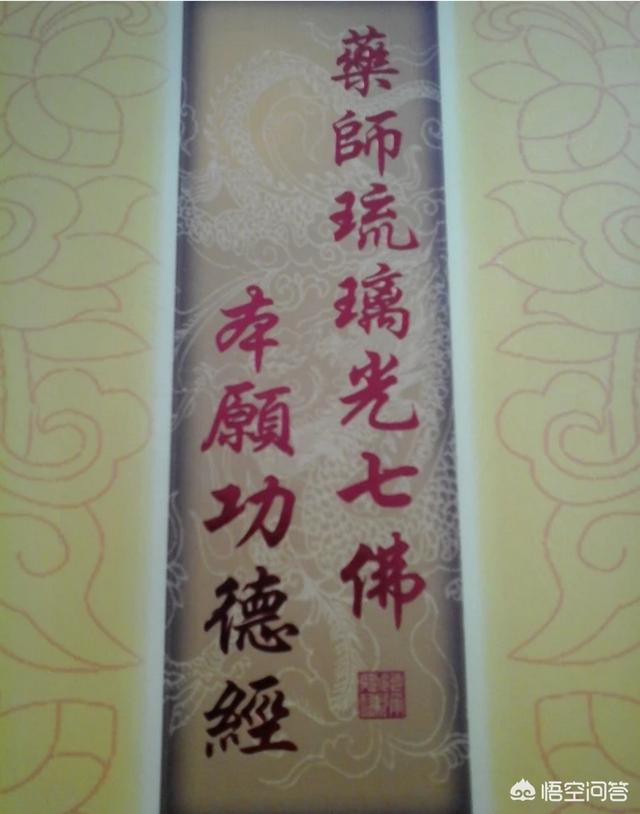 藥師琉璃光七佛
本願功德經
悟空问答